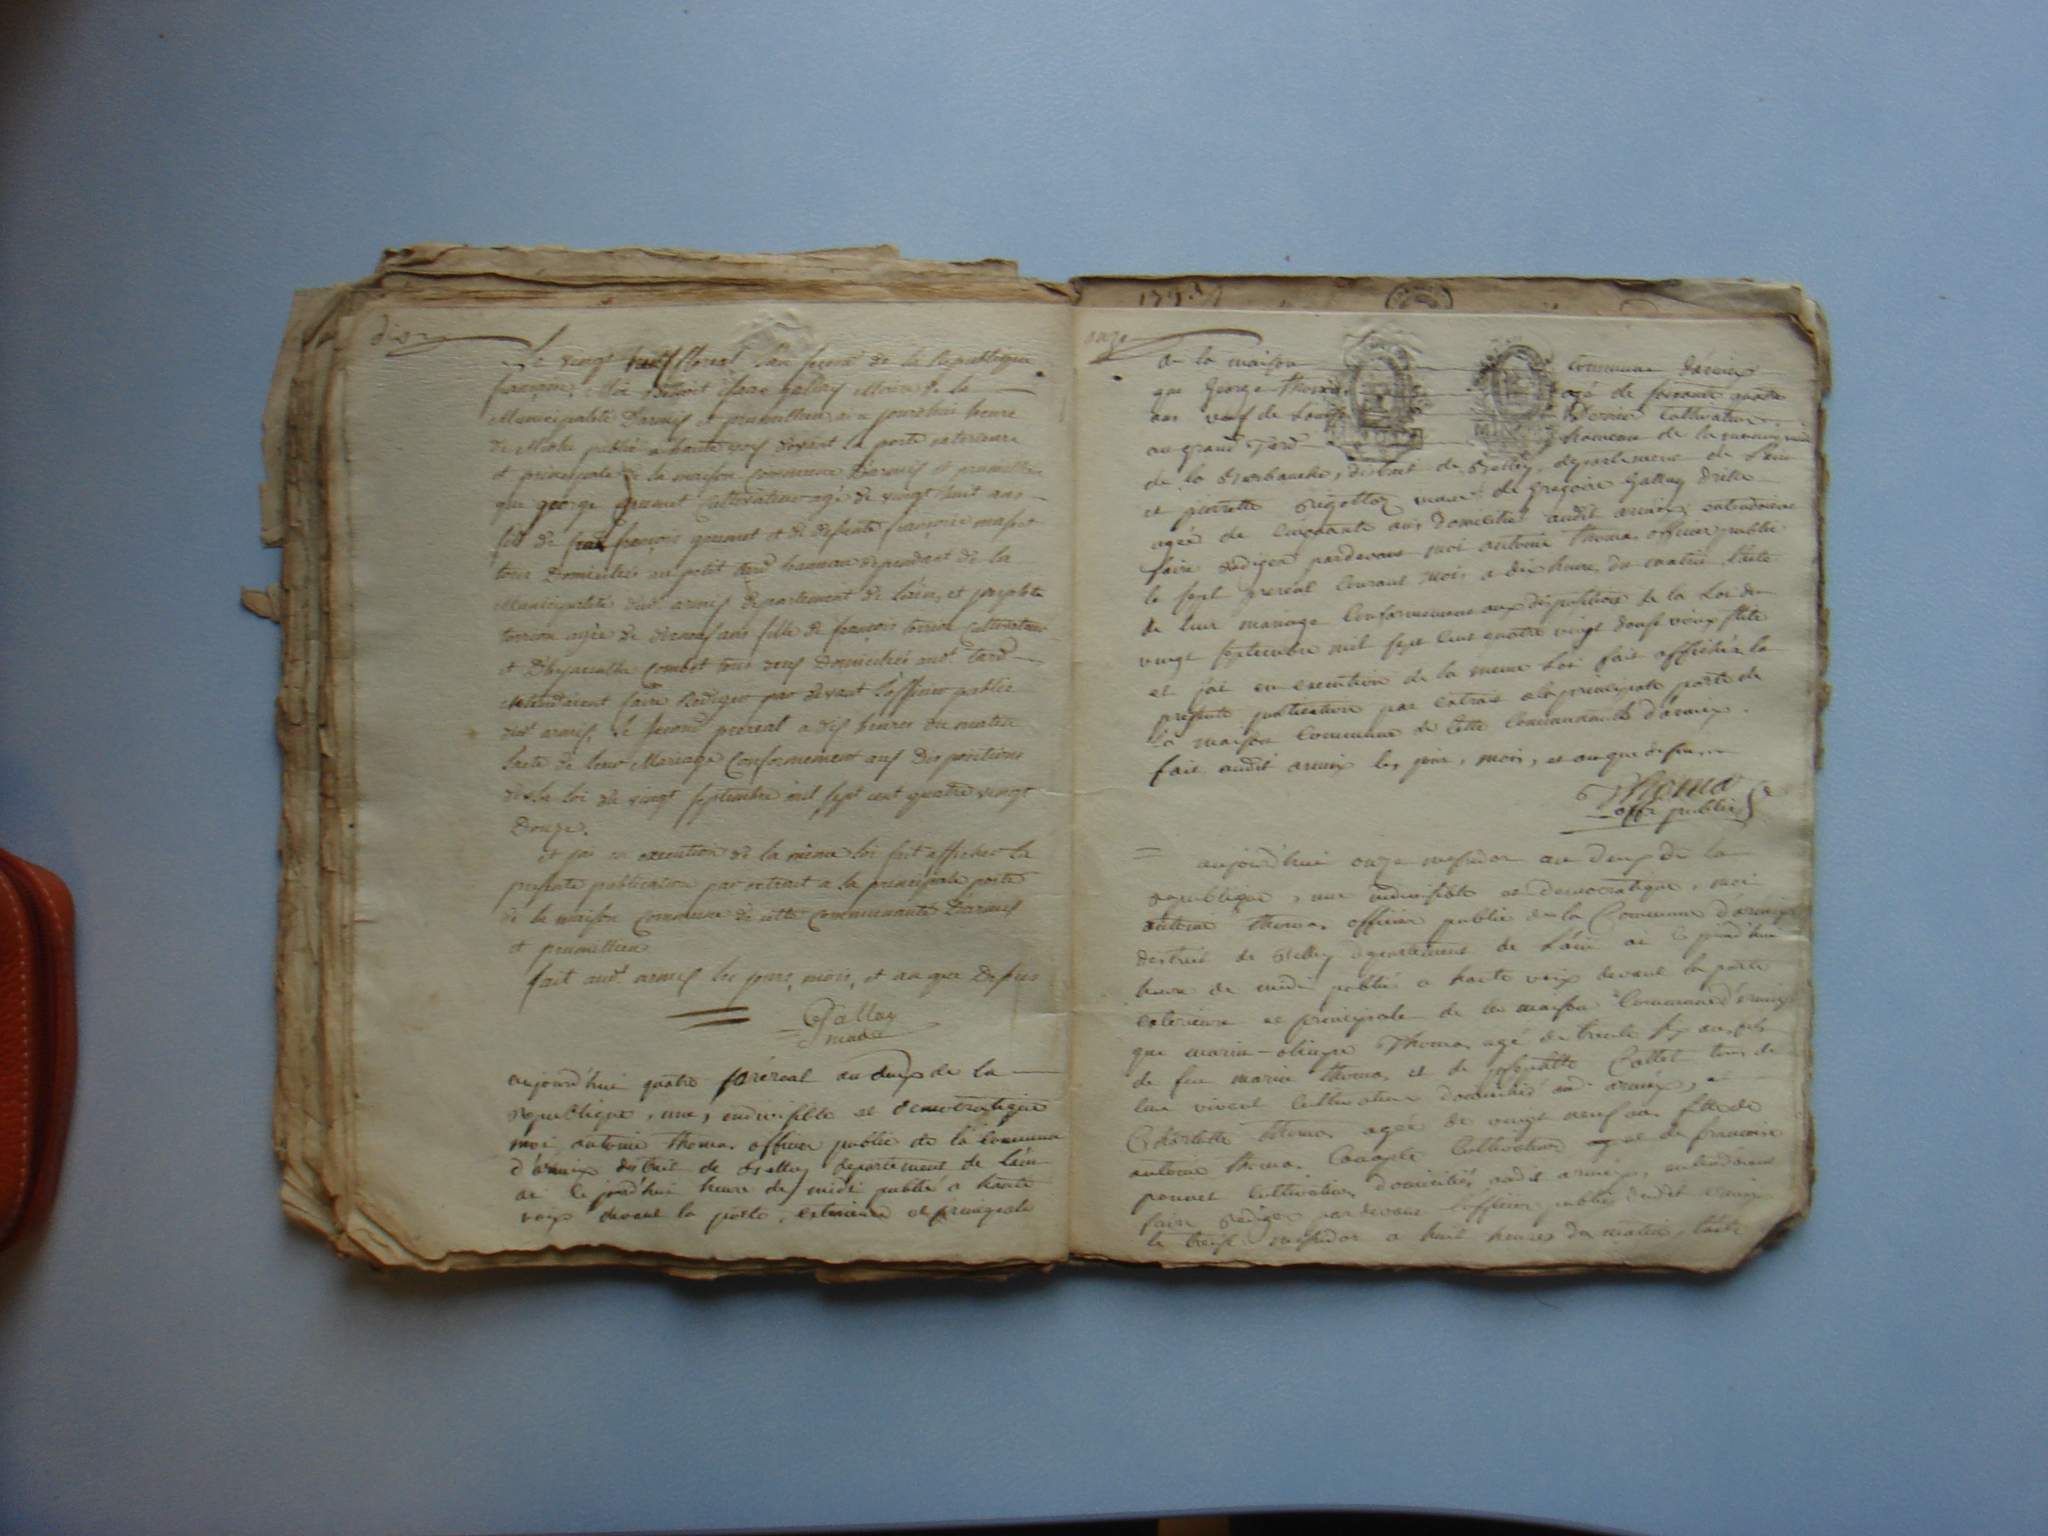 dix
Le vingt huit floreal l'an second de la Republique
francoise, Moi Benoit isaac Gallay Maire de la
Municipalité D'armis et premillieu ai ajourdhui heure
de Midi publié a haute voix devant la porte exterieure
et principale de la maison commune D'armis et premillieu
que george goumet cultivateur agé de vingt huit ans
fils de françois goumet et de deffunte françoise
tous Domiciliés au petit hameau dependant de la
Municipalité dud. armis departement de l'ain, et
agée de dixneuf ans fille de francois cultivateur
et D'hyacinthe Combet tous deux Domiciliés aud.
entendaient faire Rediger par devant L'officier public
dud. armis, le second prereal a dix heures du matin
lacte de leur Mariage Conformement aux Dispositions
de la loi du vingt septembre mil sept cent quatre vingt
Douze.
et jai en execution de la même loi fait afficher la
presente publication par extrait a la principale porte
de la maison commune de cette communauté D'armis
et premillieu
fait aud. armis les jours, mois, et an que Dessus
Gallay
maire
aujourd'hui quatre préreal an deux de la
republique, une, indivisible et democratique
moi antoine thomas officier public de la Commune
d'armix district de Belley departement de l'ain
ai ce jourd'hui heure de midi publié a haute
voix devant la porte, exterieure et principale
onze
de la maison commune d'armix
que George thomas agé de soixante quatre
ans veuf de cultivateur
au grand hameau de la
de la Burbanche, district de Belley, departement de l'ain
et pierrette veuve de Gregoire Gallay
agée de cinquante ans domiciliée audit armix entendoient
faire rediger pardevant moi antoine thomas officier public
le sept prereal courant mois a dix heure du matin l'acte
de leur mariage Conformement aux dispositions de la Loi du
vingt septembre mil sept cent quatre vingt douse vieux stile
et j'ai en execution de la meme Loi fait afficher la
presente publication par extrait a la principale porte de
la maison commune de cette communauté d'armix.
fait audit armix les jour, mois, et an que dessus
Thomas
offr public
= aujourd'hui onze messidor an deux de la
republique, une indivisible et democratique, moi
antoine thomas officier public de la Commune d'armix
destrict de Belley departement de L'ain ai ce jourd'hui
heure de midi publié a haute voix devant la porte
exterieure et principale de la maison Commune d'armix
que marin-olimpe Thomas agé de trente six ans fils
de feu marin thomas et de josephte Callet tous de
leur vivant cultivateur domiciliés aud. armix, et
Charlotte thomas agée de vingt neuf ans fille de
antoine thomas cultivateur et de francoise
ponnet cultivateurs domiciliés audit armix, entendoient
faire rediger par devant l'officier public dudit armix
le treize messidor a huit heures du matin, l'acte